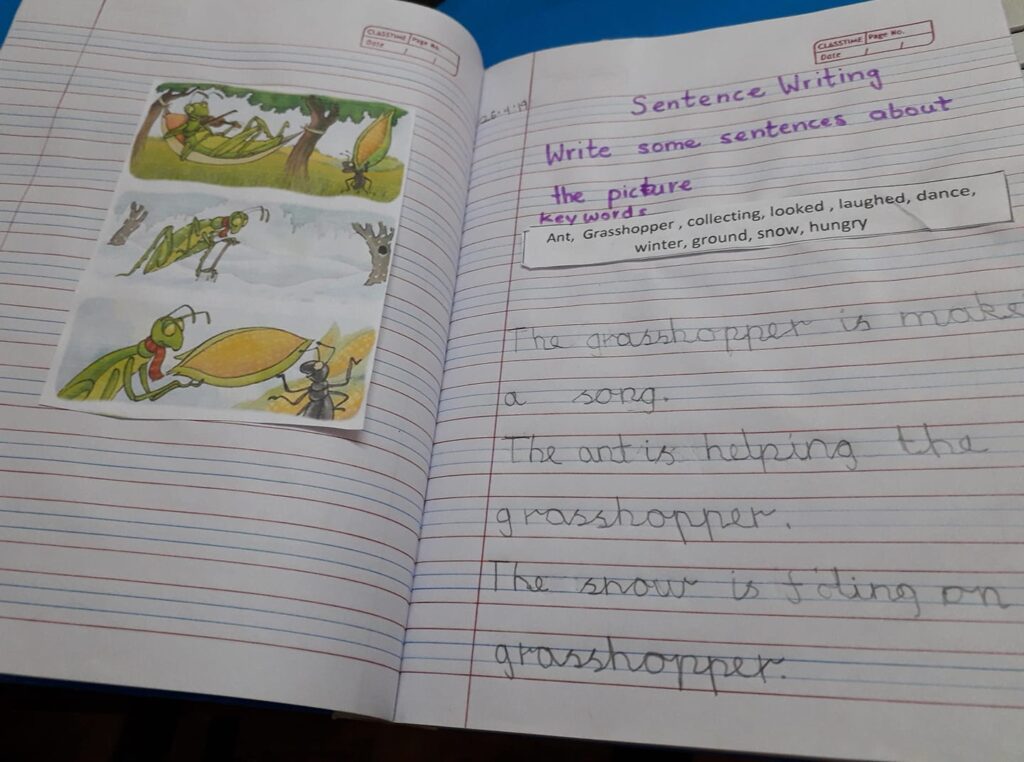 CLASSTIME Page No.
Date / /
CLASSTIME Page No.
Date / /
Sentence Writing
Write some sentences about
the picture
key words
Ant, Grasshopper, collecting, looked, laughed, dance,
winter, ground, snow, hungry
The grasshopper is make
a song.
The ant is helping the
grasshopper.
The snow is on
grasshopper.